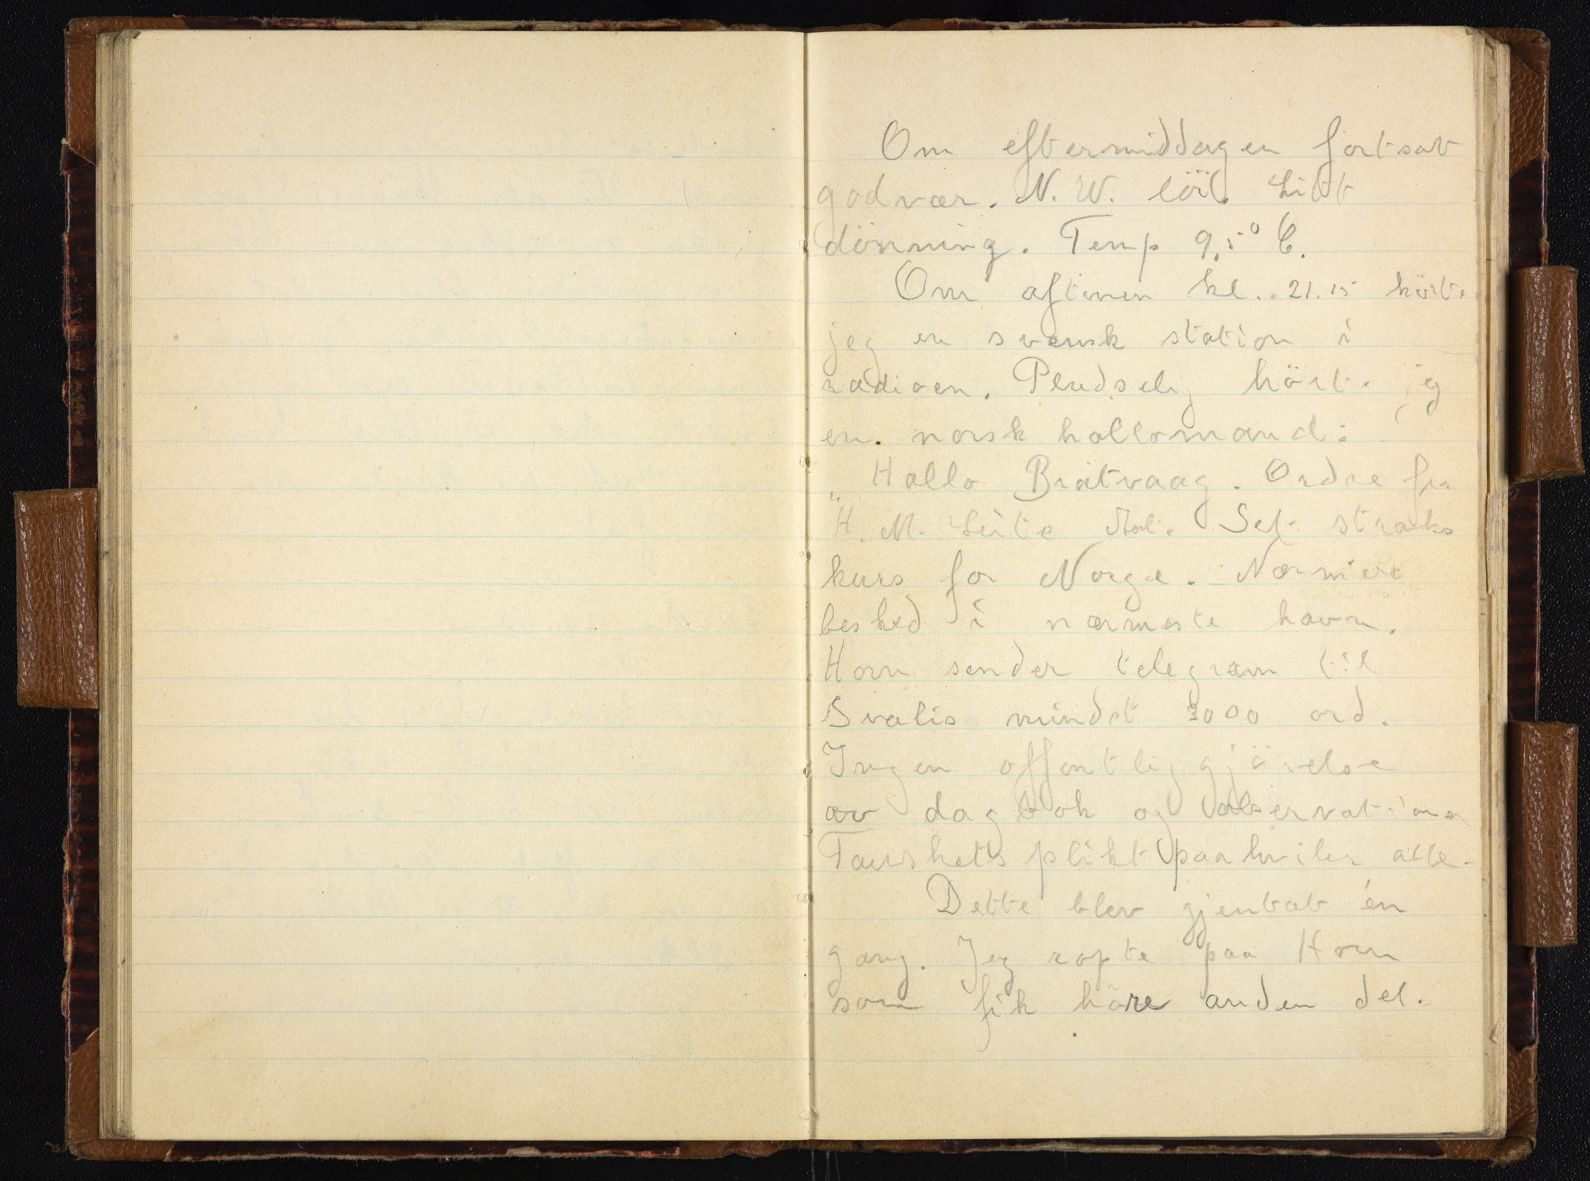 Om eftermiddagen fortsat
godvær. N. W. löi. Litt
dönning. Temp 9,5° C.
Om aftenen kl. 21.15 hörte
jeg en svensk station i
radioen. Pludselig hörte jeg
en norsk hallomand:
„Hallo Bratvaag. Ordre fra
H. M. Leite Aal. Set straks
kurs for Norge. Nærmere
besked i nærmeste havn.
Horn sender telegram til
Svalis mindst 3000 ord.
Ingen offentliggjörelse
av dagbok og observationer
Taushetsplikt paahviler alle.
Dette blev gjentat én
gang. Jeg ropte paa Horn
som fik höre anden del.